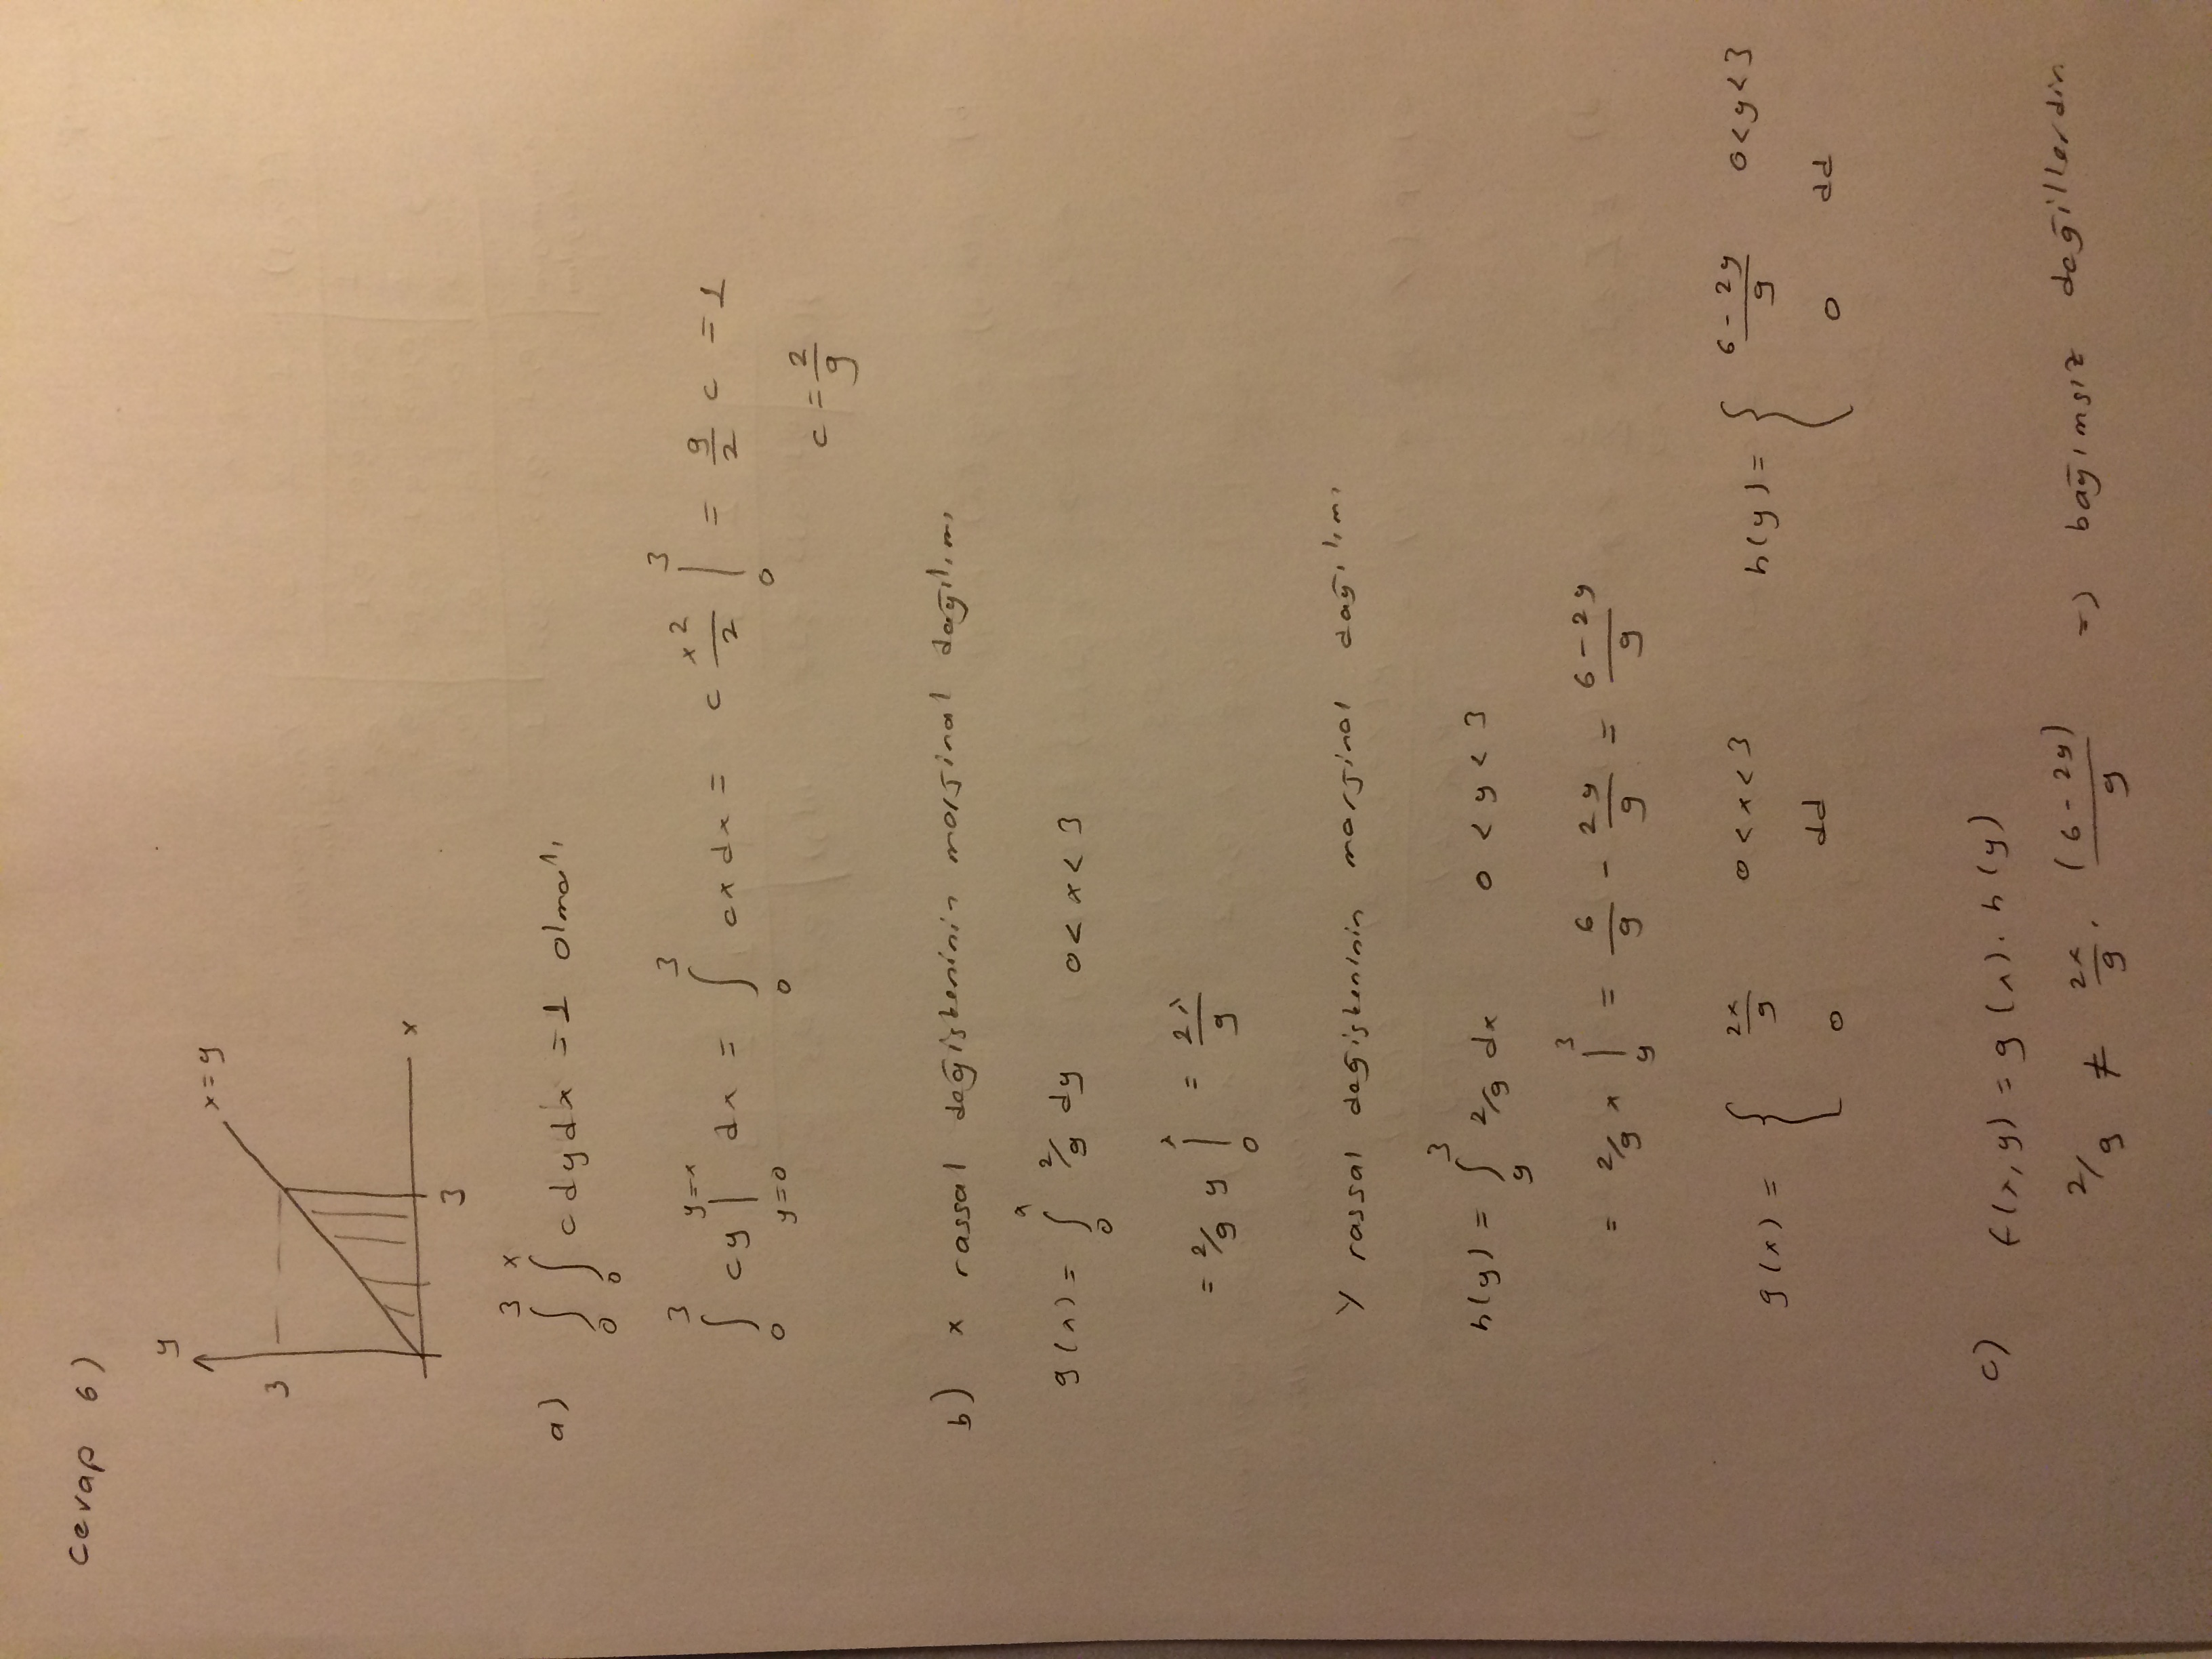 Cevap 6)
y
x=y
3
x
3
a) ∫₀³ ∫₀ˣ c dy dx = 1 olmalı
∫₀³ cy |_{y=0}^{y=x} dx = ∫₀³ cx dx = c x²/2 |₀³ = 9/2 c = 1
c = 2/9
b) x rassal değişkeninin marjinal dağılımı
g(x) = ∫₀ˣ 2/9 dy 0 < x < 3
= 2/9 y |₀ˣ = 2x/9
Y rassal değişkeninin marjinal dağılımı
h(y) = ∫_y³ 2/9 dx 0 < y < 3
= 2/9 x |_y³ = 6/9 - 2y/9 = (6-2y)/9
g(x) = { 2x/9 0<x<3 h(y) = { (6-2y)/9 0<y<3
0 dd 0 dd
c) f(x,y) = g(x). h(y)
2/9 ≠ 2x/9 . (6-2y)/9 => bağımsız değillerdir